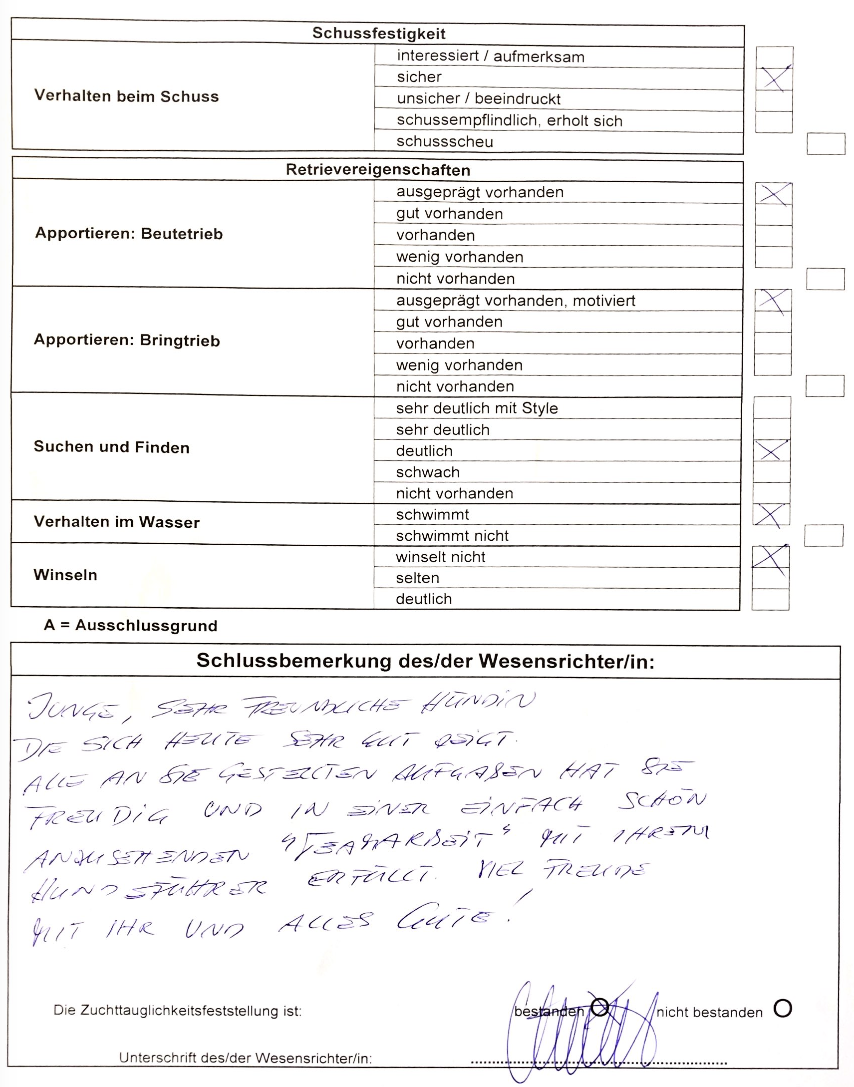 Schussfestigkeit
Verhalten beim Schuss
interessiert / aufmerksam
sicher
unsicher / beeindruckt
schussempflindlich, erholt sich
schussscheu
Retrievereigenschaften
Apportieren: Beutetrieb
ausgeprägt vorhanden
gut vorhanden
vorhanden
wenig vorhanden
nicht vorhanden
Apportieren: Bringtrieb
ausgeprägt vorhanden, motiviert
gut vorhanden
vorhanden
wenig vorhanden
nicht vorhanden
Suchen und Finden
sehr deutlich mit Style
sehr deutlich
deutlich
schwach
nicht vorhanden
Verhalten im Wasser
schwimmt
schwimmt nicht
Winseln
winselt nicht
selten
deutlich
A = Ausschlussgrund
Schlussbemerkung des/der Wesensrichter/in:
JUNGE, SEHR FREUNDLICHE HÜNDIN
DIE SICH HEUTE SEHR GUT ZEIGT.
ALLE AN SIE GESTELLTEN AUFGABEN HAT SIE
FREUDIG UND IN EINER EINFACH SCHÖN
ANZUSEHENDEN "TEAMARBEIT" MIT IHREM
HUNDEFÜHRER ERFÜLLT. VIEL FREUDE
MIT IHR UND ALLES GUTE!
Die Zuchttauglichkeitsfeststellung ist: bestanden nicht bestanden
Unterschrift des/der Wesensrichter/in: